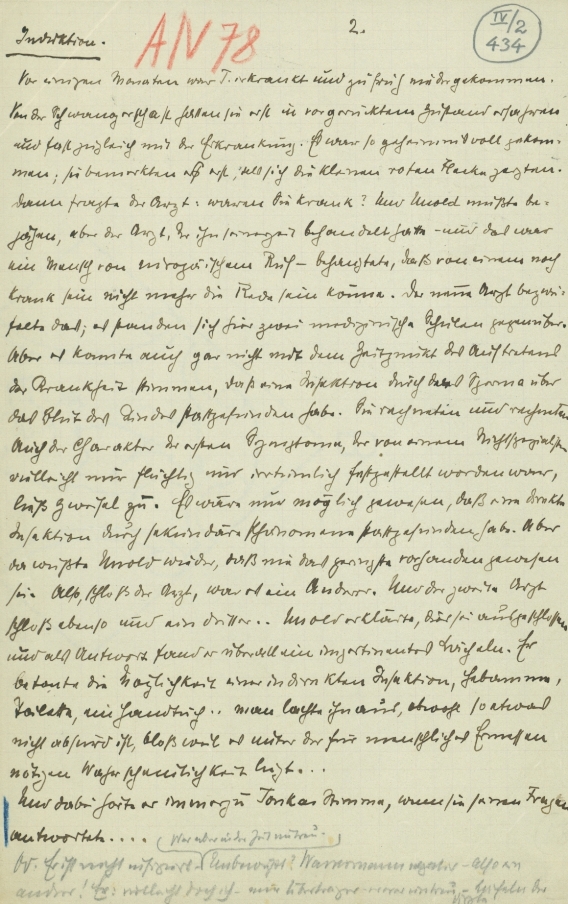 Induktion. A/V 78 2. IV/2 434
Vor einigen Monaten war T. erkrankt und zu früh niedergekommen.
Von der Schwangerschaft hatten sie erst in vorgerücktem Zustand erfahren
und fast zugleich mit der Erkrankung. Es war so geheimnisvoll gekom-
men; sie bemerkten es erst, als sich die kleinen roten Flecke zeigten.
Dann fragte der Arzt: waren Sie krank? Und Unold mußte be-
jahen, aber der Arzt, der ihn seinerzeit behandelt hatte – und das war
ein Mensch von europäischem Ruf – behauptete, daß von einem noch
krank sein nicht mehr die Rede sein könne. Der neue Arzt bezwei-
felte das; es standen sich hier zwei medizinische Schulen gegenüber.
Aber es konnte auch gar nicht mit dem Zeitpunkt des Auftretens
der Krankheit stimmen, daß eine Infektion durch das Sperma über
das Blut des Kindes stattgefunden habe. Sie rechneten und rechneten
Auch der Charakter der ersten Symptome, der von einem
vielleicht nur flüchtig und irrtümlich festgestellt worden war,
ließ Zweifel zu. Es wäre nur möglich gewesen, daß eine direkte
Infektion durch sekundäre Phänomene stattgefunden habe. Aber
da wußte Unold wieder, daß nie das geringste vorhanden gewesen
sei. Also, schloß der Arzt, war es ein Anderer. Und der zweite Arzt
schloß ebenso und ein dritter.. Unold erklärte, dies sei ausgeschlossen
und als Antwort fand er überall ein impertinentes Lächeln. Er
betonte die Möglichkeit einer indirekten Infektion, Hebamme,
Toilette, ein Handtuch.. man lachte ihn aus, obwohl so etwas
nicht absurd ist, bloß weil es unter der für menschliches Ermessen
nötigen Wahrscheinlichkeit liegt...
Und dabei hörte er immerzu Tonkas Stimme, wenn sie seinen Fragen
antwortete....
Er ist nicht infiziert – Unbewußt? Wassermann negativ – also ein
andrer! Er: vielleicht doch ich – Lächeln der